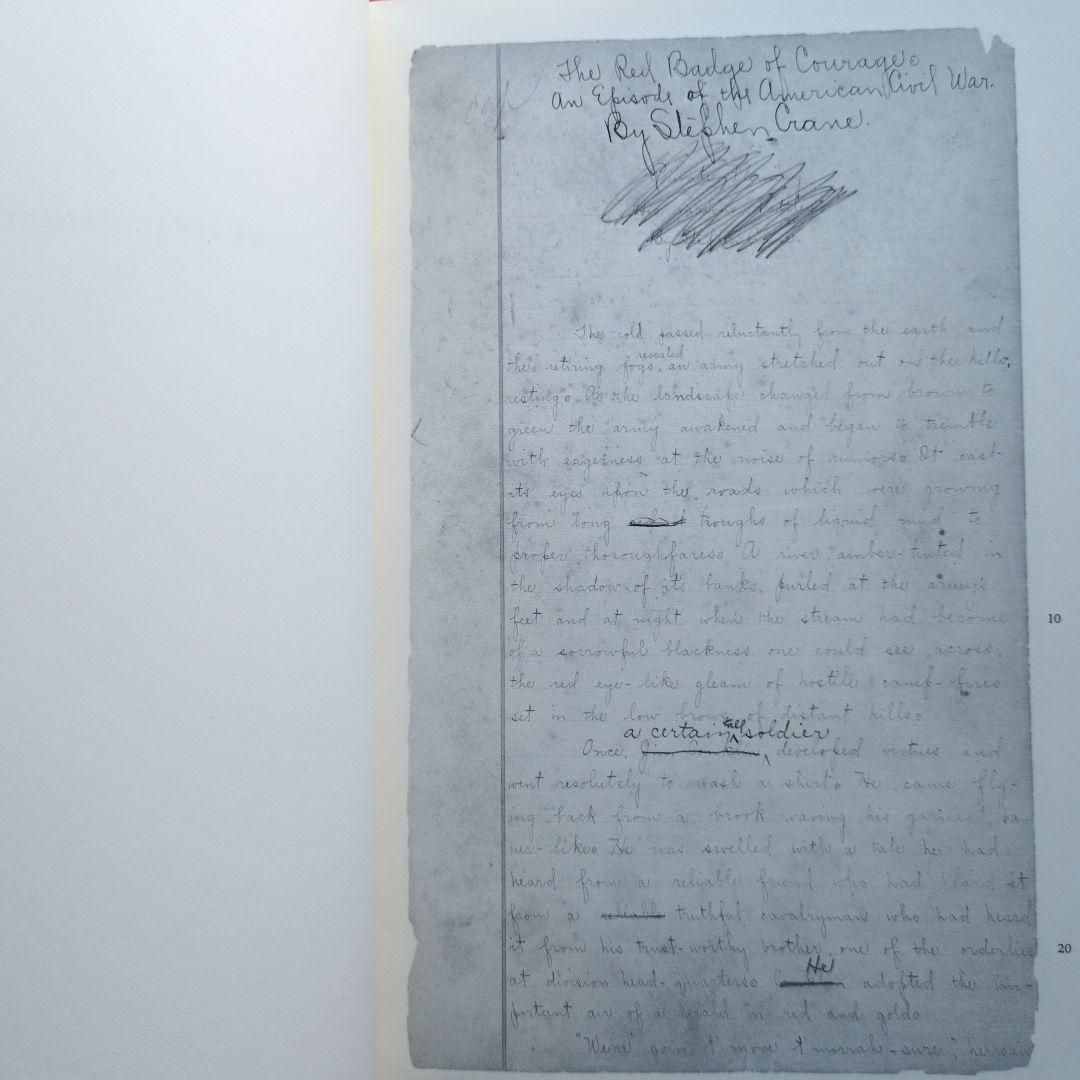 The Red Badge of Courage.
An Episode of the American Civil War.
By Stephen Crane.
The cold passed reluctantly from the earth and
revealed
the retiring fogs, an army stretched out on the hills,
resting. As the landscape changed from brown to
green the army awakened and began to tremble
with eagerness at the noise of rumors. It cast
its eyes upon the roads which were growing
from long troughs of liquid mud to
proper thoroughfares. A river, amber-tinted in
the shadow of its banks, purled at the army's
feet and at night when the stream had become
10
of a sorrowful blackness one could see, across,
the red eye-like gleam of hostile camp-fires
set in the low brows of distant hills.
a certain tall soldier
Once, Jim Conklin, developed virtues and
went resolutely to wash a shirt. He came fly-
ing back from a brook waving his garment, ban
ner-like. He was swelled with a tale he had
heard from a reliable friend who had heard it
from a reliable truthful cavalryman who had heard
it from his trust-worthy brother, one of the orderlies
20
He
at division head-quarters. adopted the im-
portant air of a herald in red and gold.
"We're goin' t' move t'morrah-sure", he said